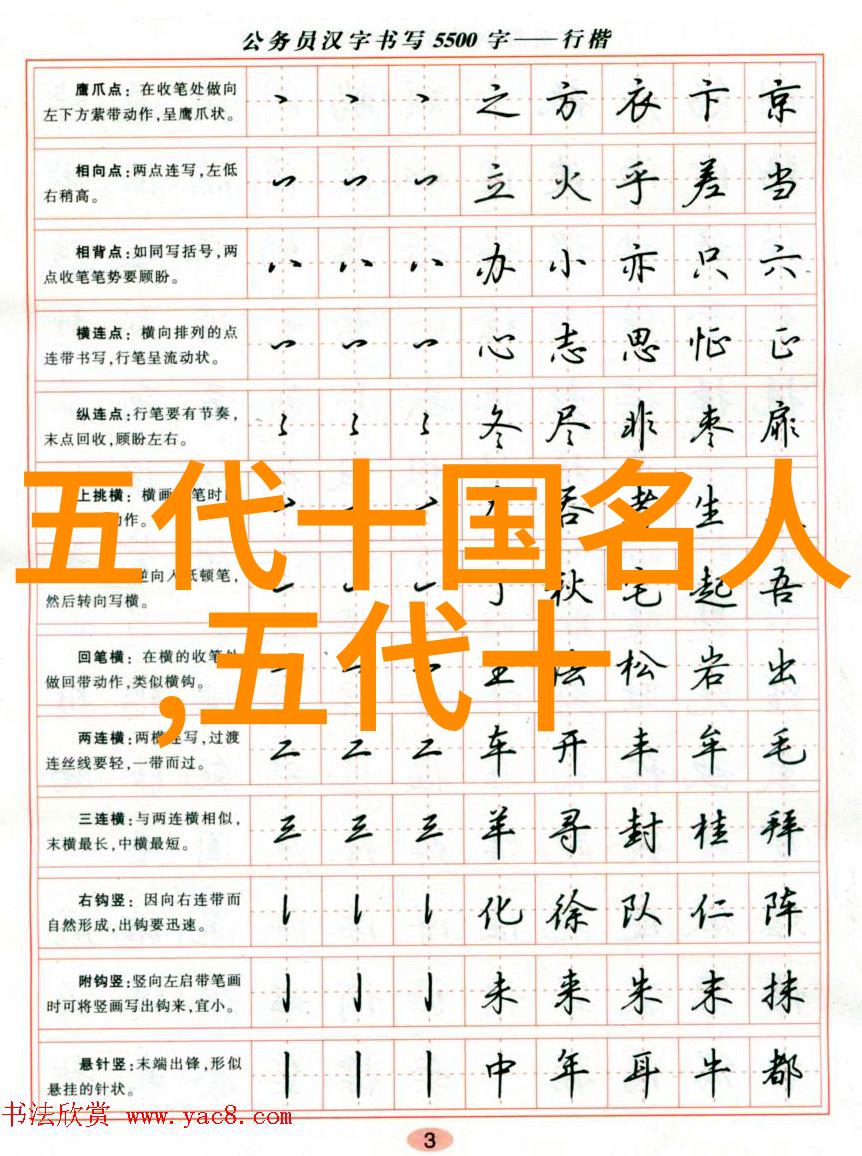 公务员汉字书写5500字——行楷
鹰爪点：在收笔处做向
左下方萦带动作，呈鹰爪状。
之 方 衣 卞 京
相向点：两点连写，左低
右稍高。
立 火 乎 差 当
相背点：如同写括号，两
点收笔笔势要顾盼。
办 小 亦 只 六
横连点：横向排列的点
连带书写，行笔呈流动状。
心 志 思 怔 正
纵连点：行笔要有节奏，
末点回收，顾盼左右。
冬 尽 非 枣 扉
五代十国名人
,五代十
上挑横：横画 笔时
作。
吞 生
逆向入纸顿笔，
然后转向写横。
秋 宅 起 吾
回笔横：在横的收笔处
做回带动作，类似横钩。
王 松 岩 出
两连横：两横连写，过渡
连丝线要轻，一带而过。
车 开 丰 牟 毛
三连横：与两连横相似，
末横最长，中横最短。
羊 寻 封 桂 拜
右钩竖：因向右连带而
自然形成，出钩要迅速。
化 徐 队 仁 阵
附钩竖：竖向左启带笔画
时可将竖画写出钩来，宜小。
未 来 朱 末 抹
悬针竖：末端出锋，形似
悬挂的针状。
中 年 耳 牛 都
书法欣赏 www.yac8.com
3